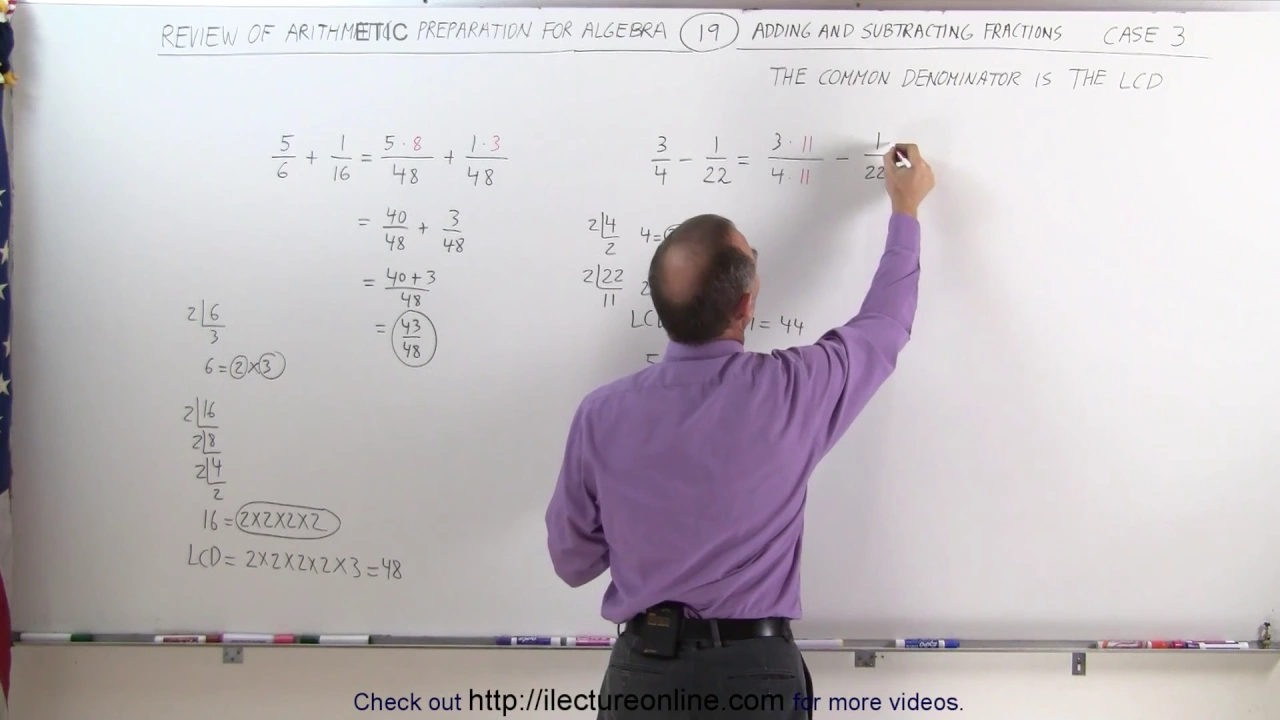 REVIEW OF ARITHMETIC PREPARATION FOR ALGEBRA 19 ADDING AND SUBTRACTING FRACTIONS CASE 3
THE COMMON DENOMINATOR IS THE LCD
5/6 + 1/16 = 5·8/48 + 1·3/48
= 40/48 + 3/48
= 40+3/48
= 43/48
2|6
3
6 = 2×3
2|16
2|8
2|4
2
16 = 2×2×2×2
LCD = 2×2×2×2×3 = 48
3/4 − 1/22 = 3·11/4·11 − 1/22
2|4
2
4 =
2|22
11
= 44
Check out http://ilectureonline.com for more videos.